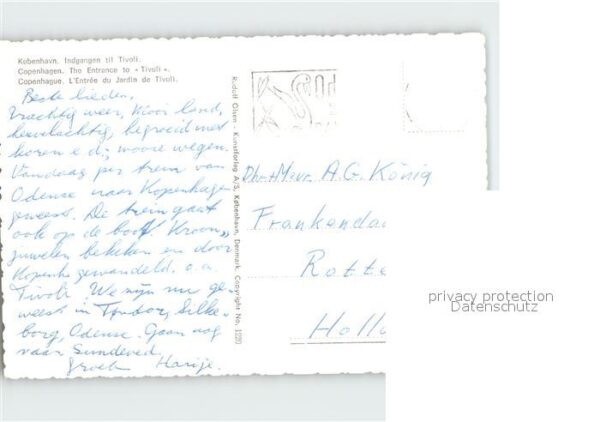 København. Indgangen til Tivoli.
Copenhagen. The Entrance to «Tivoli».
Copenhague. L'Entrée du Jardin de Tivoli.
Beste lieden,
Prachtig weer, Mooi land,
heuvelachtig, begroeid met
koren e.d; mooie wegen.
Vandaag per trein van
Odense naar Kopenhagen
geweest. De trein gaat
ook op de boot! Kroon-
juwelen bekeken en door
Kopenh gewandeld. o.a.
Tivoli. We zijn nu ge-
weest in Silke-
borg, Odense. Gaan nog
naar
Groeten
Rudolf Olsen - Kunstforlag A/S, København, Denmark. Copyright No.
A.G. König
Frankenda
Rotte
Holla
privacy protection
Datenschutz